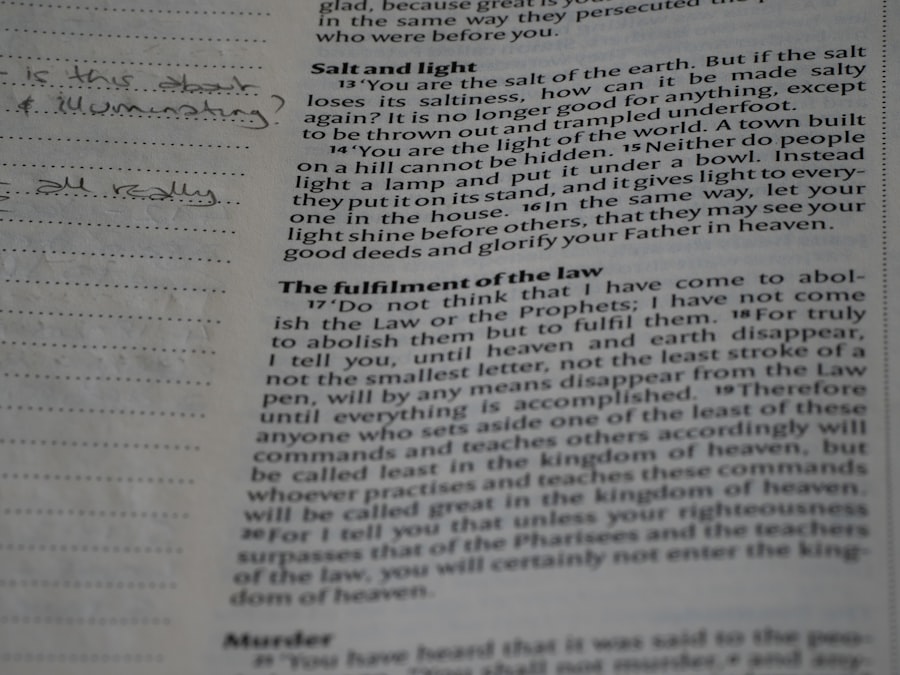 - is this about
& illuminating?
all really
glad, because great is
in the same way they persecuted the
who were before you.
Salt and light
13 ‘You are the salt of the earth. But if the salt
loses its saltiness, how can it be made salty
again? It is no longer good for anything, except
to be thrown out and trampled underfoot.
14 ‘You are the light of the world. A town built
on a hill cannot be hidden. 15 Neither do people
light a lamp and put it under a bowl. Instead
they put it on its stand, and it gives light to every-
one in the house. 16 In the same way, let your
light shine before others, that they may see your
good deeds and glorify your Father in heaven.
The fulfilment of the law
17 ‘Do not think that I have come to abol-
ish the Law or the Prophets; I have not come
to abolish them but to fulfil them. 18 For truly
I tell you, until heaven and earth disappear,
not the smallest letter, not the least stroke of a
pen, will by any means disappear from the Law
until everything is accomplished. 19 Therefore
anyone who sets aside one of the least of these
commands and teaches others accordingly will
be called least in the kingdom of heaven, but
whoever practises and teaches these commands
will be called great in the kingdom of heaven.
20 For I tell you that unless your righteousness
surpasses that of the Pharisees and the teachers
of the law, you will certainly not enter the king-
dom of heaven.
Murder
21 ‘You have heard that it was said to the peo-
“You shall not murder, and any-